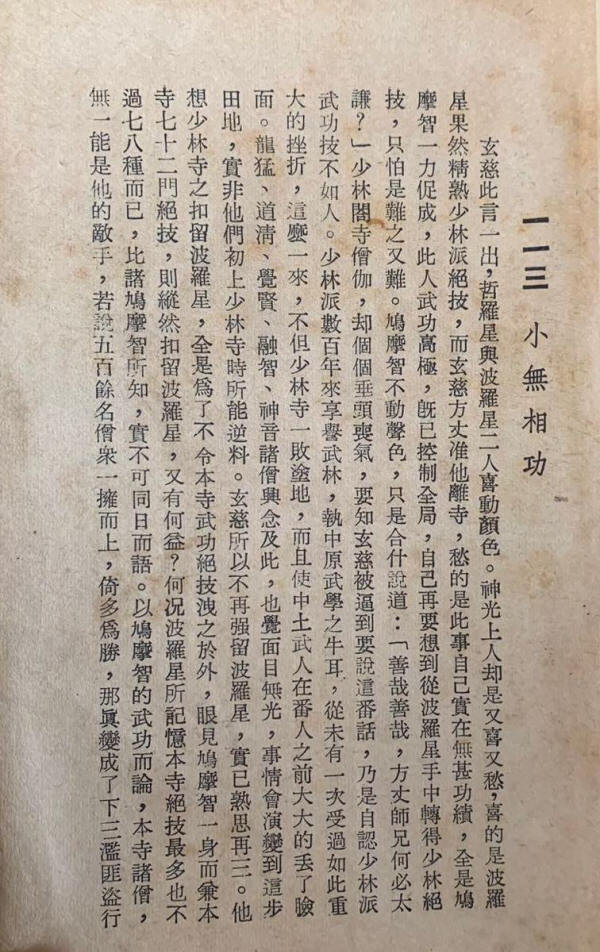 一一三　小無相功
玄慈此言一出，哲羅星與波羅星二人喜動顏色。神光上人却是又喜又愁，喜的是波羅
星果然精熟少林派絕技，而玄慈方丈准他離寺，愁的是此事自己實在無甚功績，全是鳩
摩智一力促成，此人武功高極，旣已控制全局，自己再要想到從波羅星手中轉得少林絕
技，只怕是難之又難。鳩摩智不動聲色，只是合什說道：「善哉善哉，方丈師兄何必太
謙？」少林闔寺僧伽，却個個垂頭喪氣，要知玄慈被逼到要說這番話，乃是自認少林派
武功技不如人。少林派數百年來享譽武林，執中原武學之牛耳，從未有一次受過如此重
大的挫折，這麼一來，不但少林寺一敗塗地，而且使中土武人在番人之前大大的丢了臉
面。龍猛、道淸、覺賢、融智、神音諸僧興念及此，也覺面目無光，事情會演變到這步
田地，實非他們初上少林寺時所能逆料。玄慈所以不再强留波羅星，實已熟思再三。他
想少林寺之扣留波羅星，全是爲了不令本寺武功絕技洩之於外，眼見鳩摩智一身而兼本
寺七十二門絕技，則縱然扣留波羅星，又有何益？何況波羅星所記憶本寺絕技最多也不
過七八種而已，比諸鳩摩智所知，實不可同日而語。以鳩摩智的武功而論，本寺諸僧，
無一能是他的敵手，若說五百餘名僧衆一擁而上，倚多爲勝，那眞變成了下三濫匪盜行